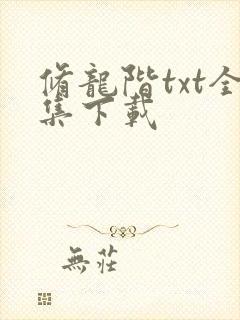 脩龍階txt全
集下載
無莊